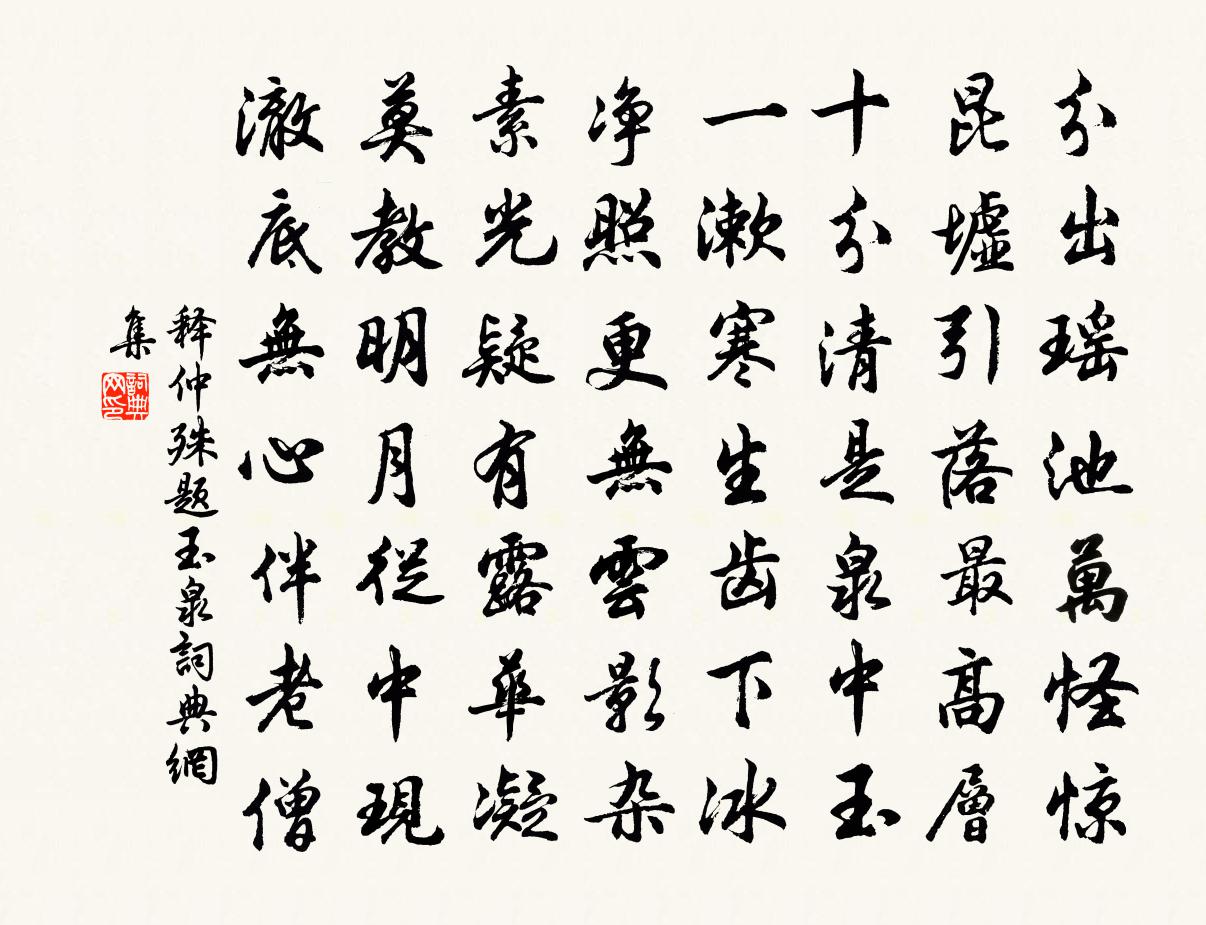 分出瑶池萬怪惊
昆墟引落最高層
十分清是泉中玉
一漱寒生齿下冰
净照更無雲影杂
素光疑有露華凝
莫教明月從中現
澈底無心伴老僧
释仲殊题玉泉詞典網
集
詞典
网印